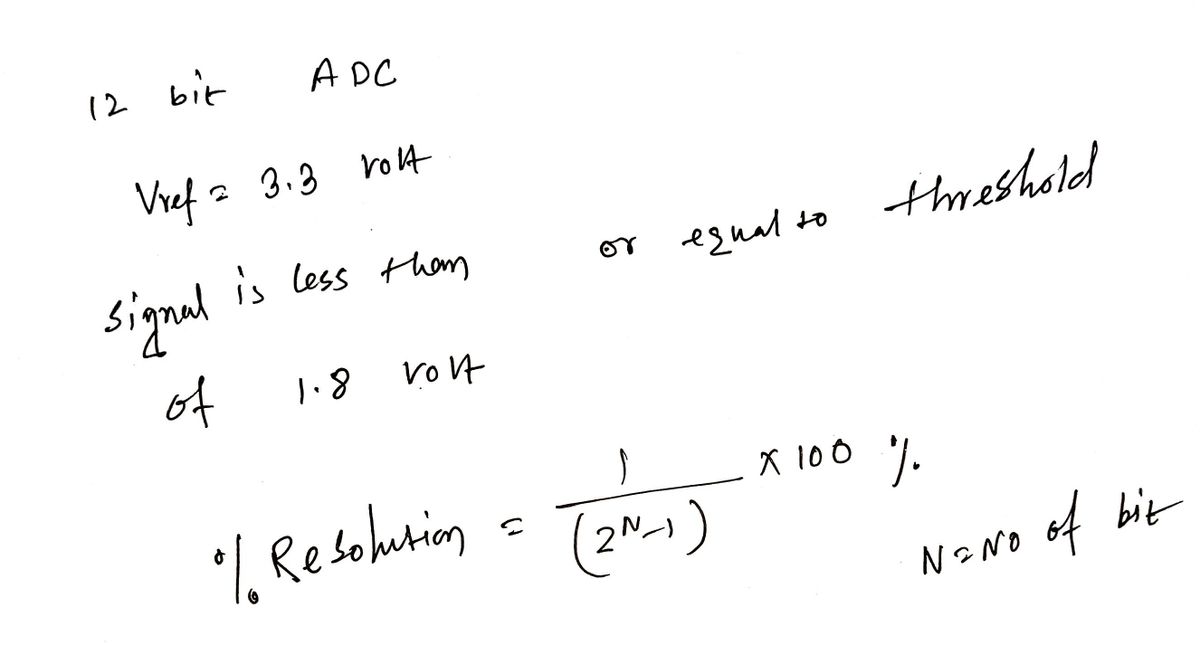 12 bit ADC
Vref = 3.3 volt
signal is less than or equal to threshold
of 1.8 volt
% Resolution = 1 / (2^N-1) × 100 %
N = No of bit